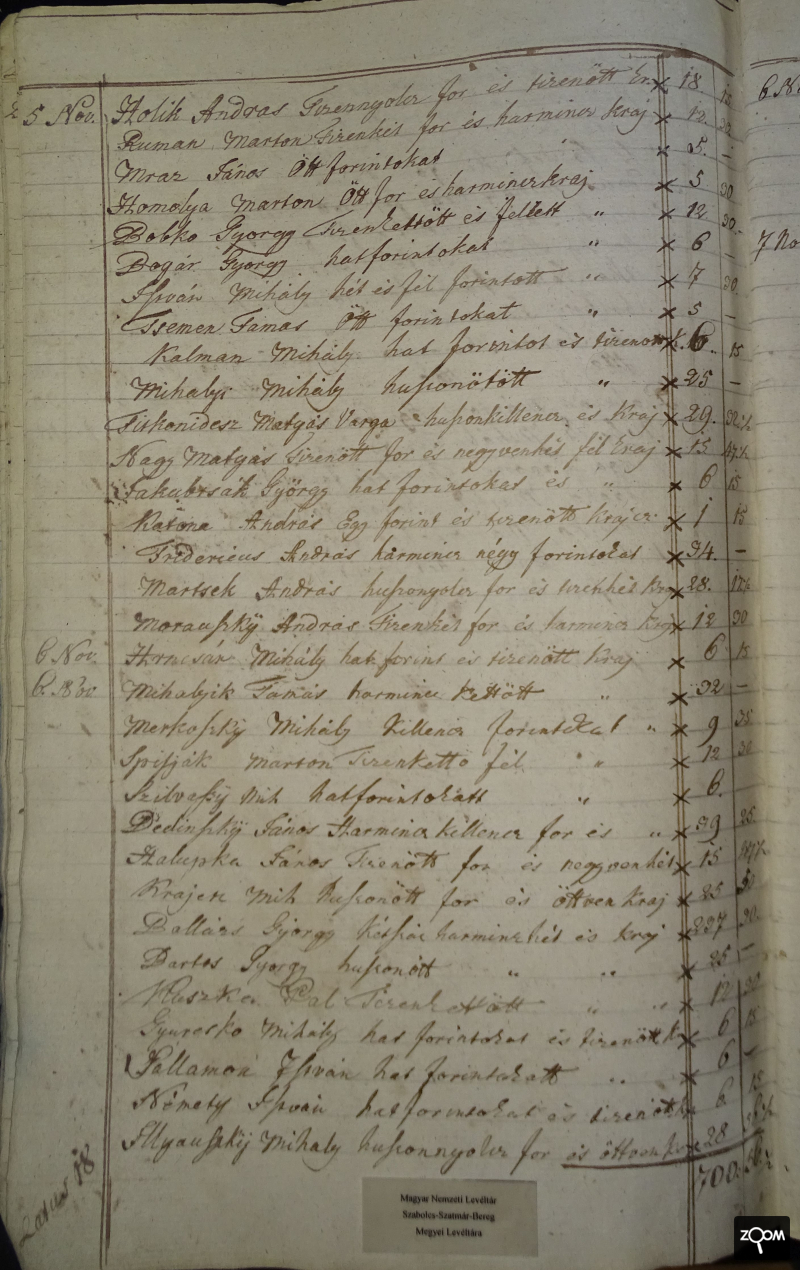 5 Nov. Holik Andras Tizennyolcz for és tizenött kr x 18 15
Ruman Marton Tizenkét for és harmincz kraj x 12 30
Mraz János Ött forintokat „ x 5. –
Homolya Marton Ött for és harmincz kraj x 5 30
Bobko György Tizenkettött és fellett „ x 12 30.
Bogár György hat forintokat „ x 6 –
István Mihály hét és fél forintott „ x 7 30.
Tsemen Tamas Ött forintokat „ x 5 –
Kalman Mihály hat forintot és tizenött k. x 6. 15
Mihalyi Mihály huszonötött „ x 25 –
Matyás Varga huszonkillencz és Kraj x 29.
Nagy Matyás Tizenött for és negyvenhét fél kraj x 15 47½
Jakubtsák György hat forintokat és „ x 6 15
Katona András Egy forint és tizenött krajcz x 1 15
Fridericus András harmincz négy forintokat x 34. –
Martsek András huszongyolcz for és tizenhét kra x 28.
Morauszky András Tizenkét for és harmincz kraj x 12 30
6 Nov. Hrncsár Mihály hat forint és tizenött kraj x 6 15
Mihalyik Tamás harmincz kettött „ x 32 –
Merkoszky Mihály killencz forintokat „ x 9
Spisják Marton Tizenketto fél „ x 12 30
Szilvaszy Mih hat forintokatt „ x 6. –
Dedinszky János Harmincz killencz for és „ x 39 25
Halupka János Tizenött for és negyvenhét x 15 47½
Krajcz Mih huszonött for és öttven kraj x 25 50
György kétszáz harminczhét és kraj x 237 30.
Bartos György huszonött „ „ x 25 –
Pal Tizenkettött „ „ x 12 30
Gyurcsko Mihály hat forintokat és tizenött k x 6 15
István hat forintokatt „ x 6 –
Némety István hat forintokat és tizenött k 6 15
Illyauszky Mihaly huszonnyolcz for és öttven x 28
700.
Latus 18
Magyar Nemzeti Levéltár
Szabolcs-Szatmár-Bereg
Megyei Levéltára
6 N.
7 No
ZOOM